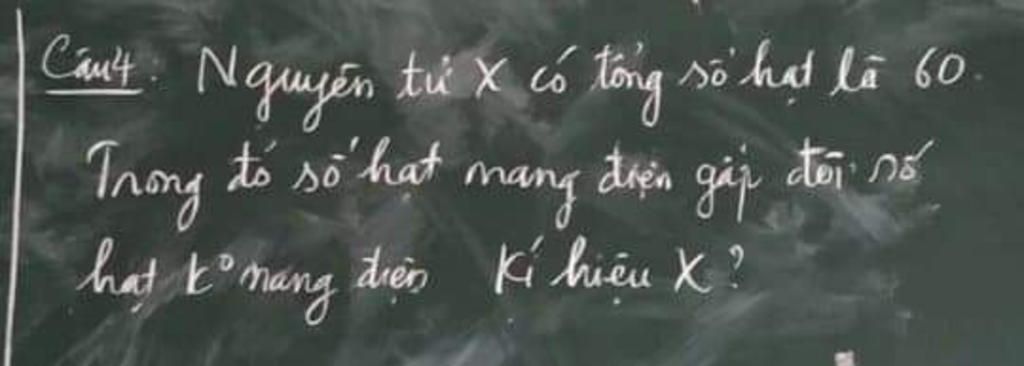 Câu4. Nguyên tử X có tổng số hạt là 60.
Trong đó số hạt mang điện gấp đôi số
hạt k° mang điện Kí hiệu X?